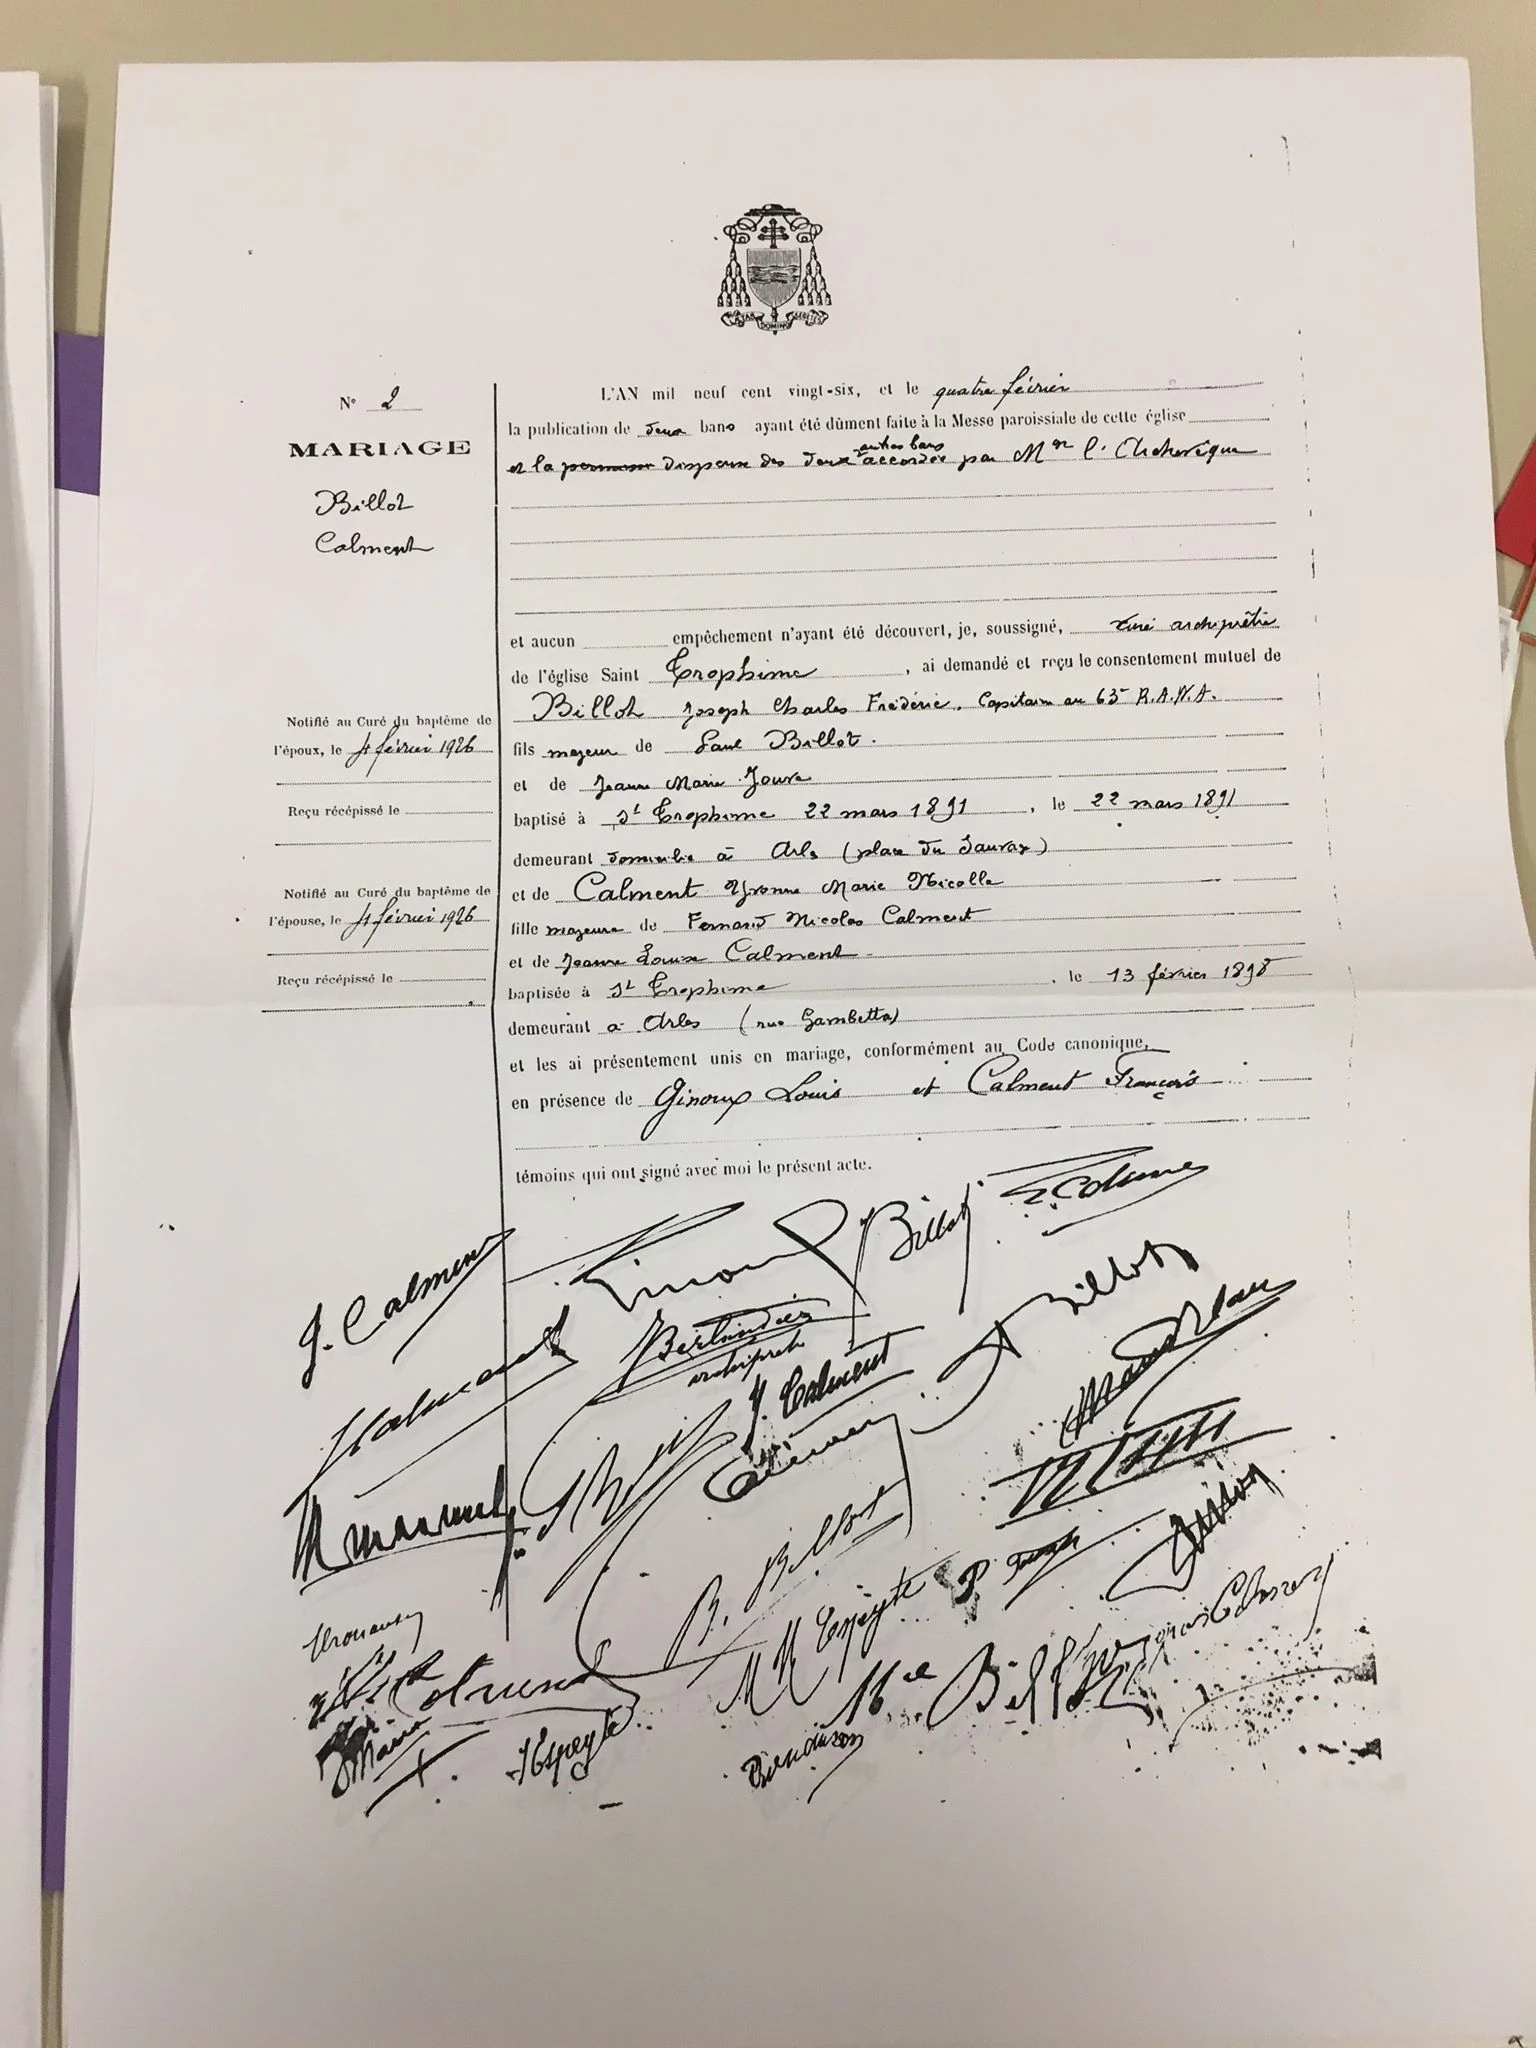 DOMINO
N° 2
MARIAGE
Billot
Calment
L'AN mil neuf cent vingt-six, et le quatre février
la publication de deux bans ayant été dûment faite à la Messe paroissiale de cette église
autres bans
et la dispense des deux accordée par Mgr l'Archevêque
et aucun empêchement n'ayant été découvert, je, soussigné, curé archiprêtre
de l'église Saint Trophime, ai demandé et reçu le consentement mutuel de
Billot Joseph Charles Frédéric, Capitaine au 63e R.A.N.A.
Notifié au Curé du baptême de
l'époux, le 4 février 1926
fils majeur de Paul Billot.
et de Jeanne Marie Jouve
Reçu récépissé le
baptisé à St Trophime 22 mars 1891, le 22 mars 1891
demeurant domicilié à Arles (place du Sauvage)
Notifié au Curé du baptême de
l'épouse, le 4 février 1926
et de Calment Yvonne Marie Nicolle
fille majeure de Fernand Nicolas Calment
et de Jeanne Louise Calment
Reçu récépissé le
baptisée à St Trophime, le 13 février 1898
demeurant à Arles (rue Gambetta)
et les ai présentement unis en mariage, conformément au Code canonique,
en présence de Ginoux Louis et Calment François
témoins qui ont signé avec moi le présent acte.
J. Calment
Billot
Billot
Bertandier
archiprêtre
Y. Calment
B. Billot
M Espeyte
Calment
Maria
Espeyte
Mlle Billot